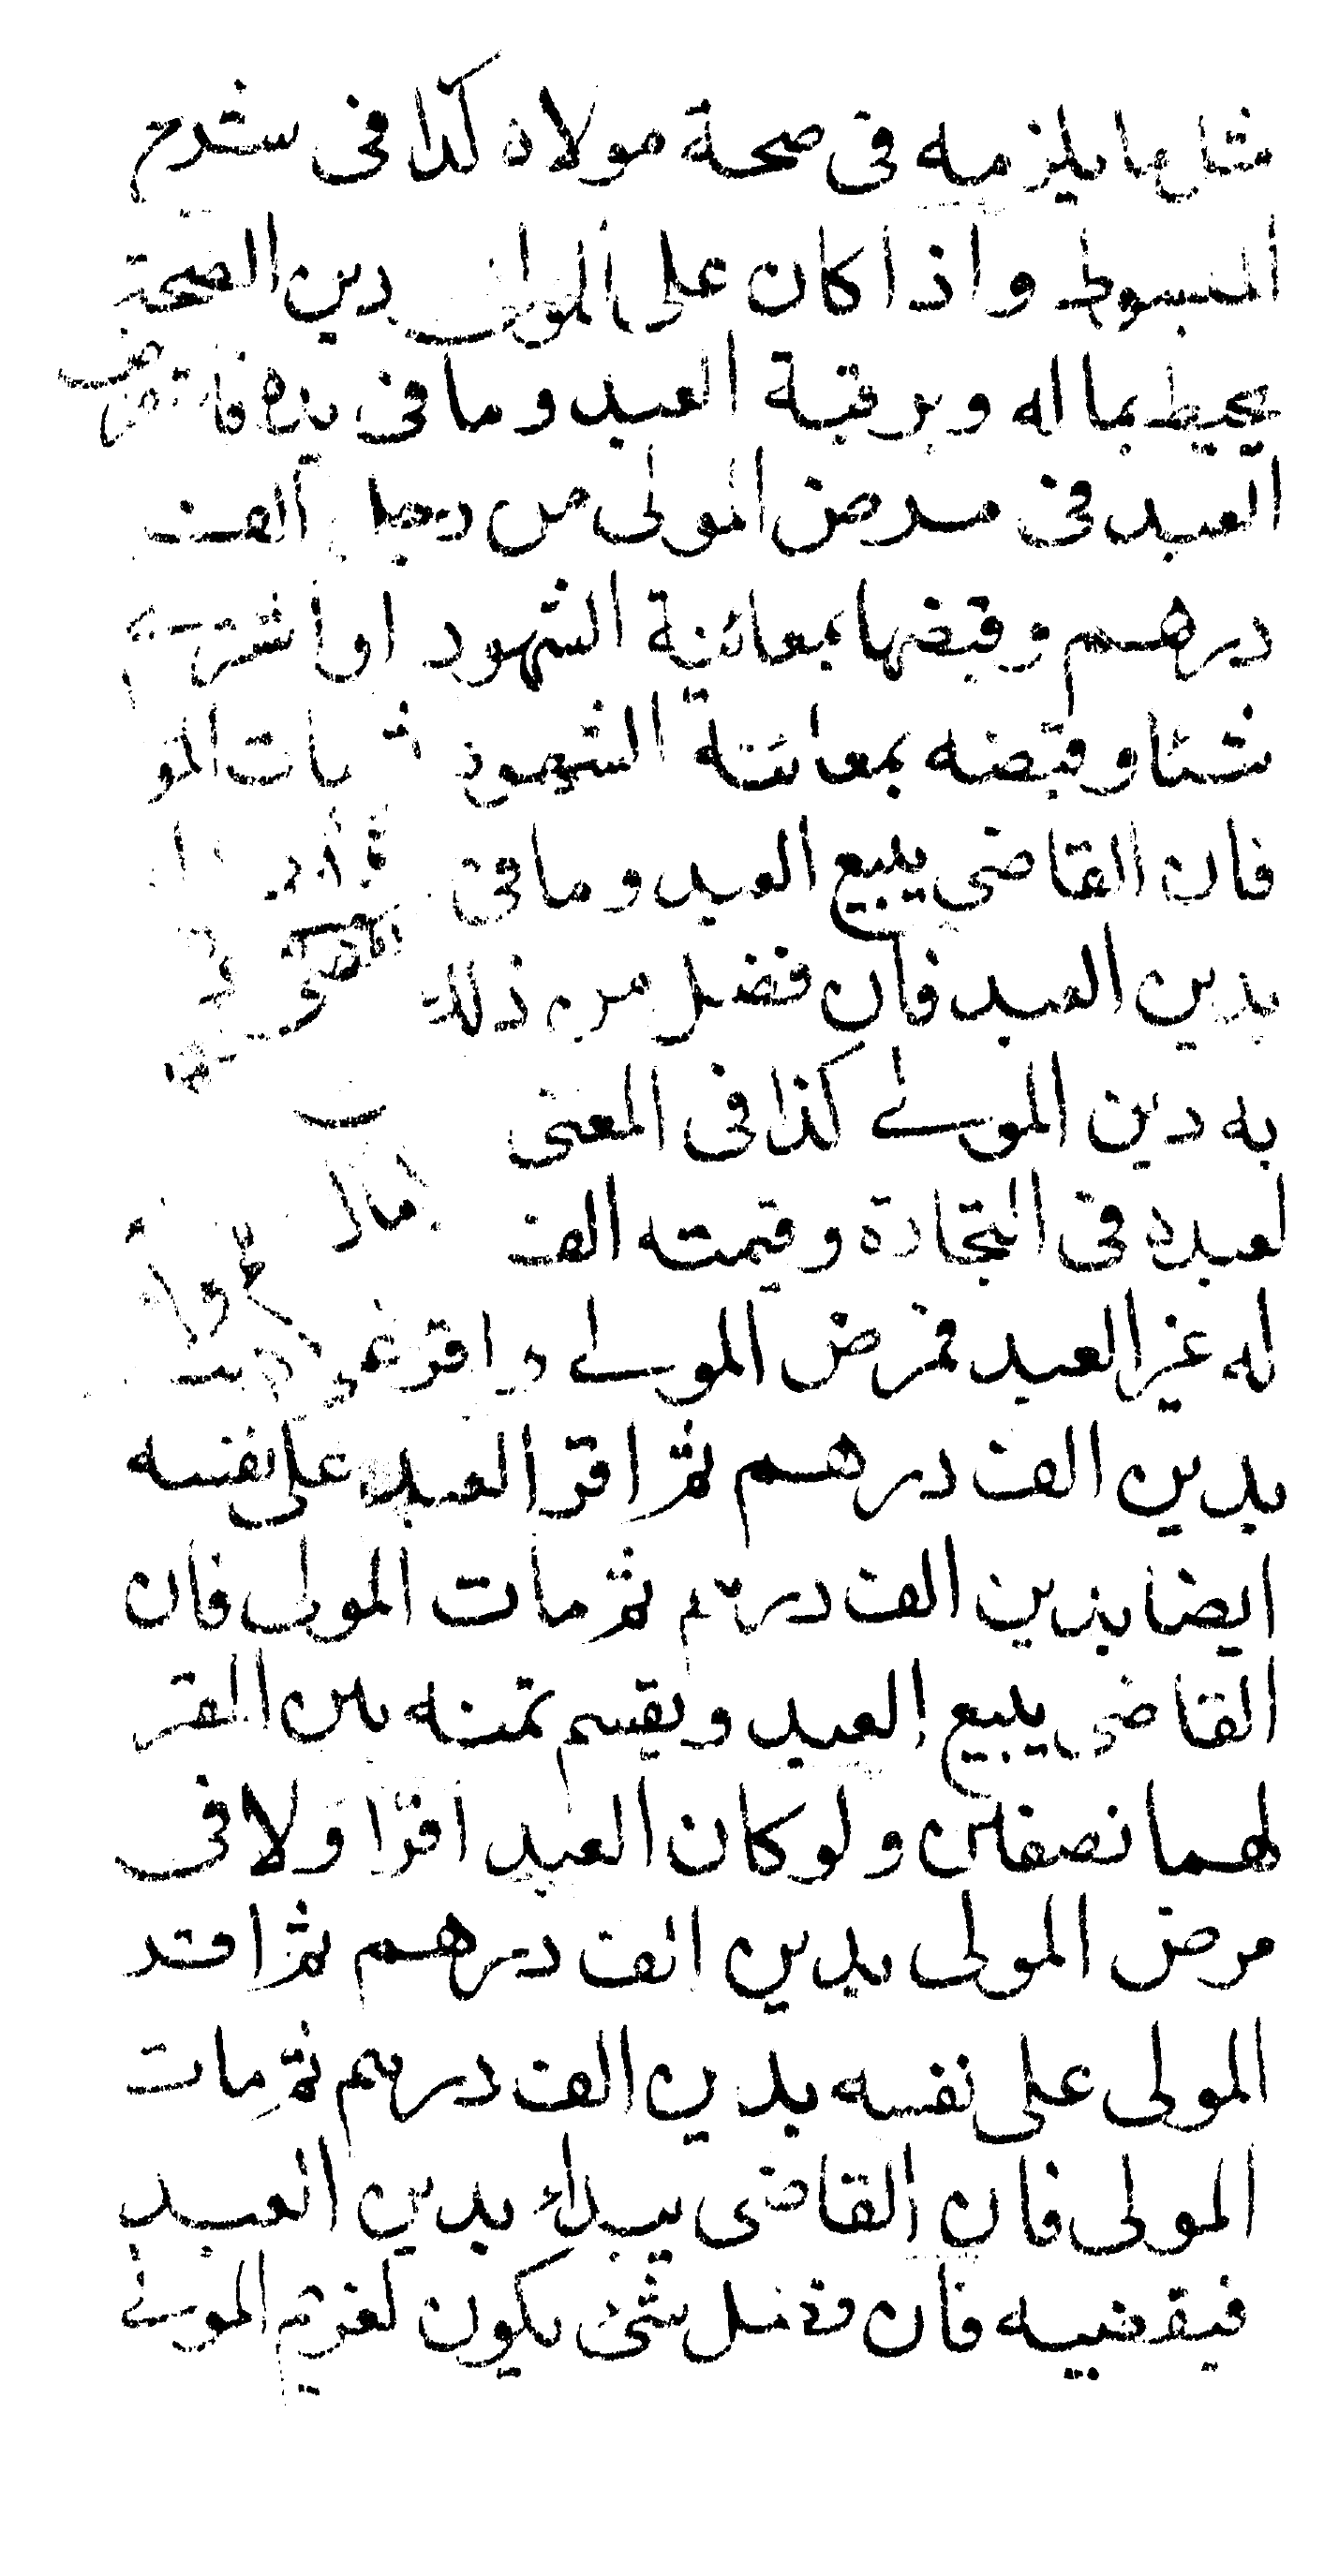 مثل ما يلزمه في صحة مولاه كذا فى شرح
المبسوط واذا كان على المولى دين الصحة
يحيط بماله وبرقبة العبد وما فى يده فاستقرض
العبد فى مرض المولى من رجل الف
درهم وقبضها بمعاينة الشهود او اشترى
شئا وقبضه بمعاينة الشهود ثم مات المو
فان القاضى يبيع العبد وما فى
بدين العبد فان فضل من ذلك
به دين المولى كذا فى المغنى
لعبده فى التجارة وقيمته الف
له غير العبد فمرض المولى واقر على
بدين الف درهم ثم اقر العبد على نفسه
ايضا بدين الف درهم ثم مات المولى فان
القاضى يبيع العبد ويقسم ثمنه بين المقر
لهما نصفين ولو كان العبد اقر اولا فى
مرض المولى بدين الف درهم ثم اقر
المولى على نفسه بدين الف درهم ثم مات
المولى فان القاضى يبداء بدين العبد
فيقضيه فان فضل شئ يكون لغريم المولى